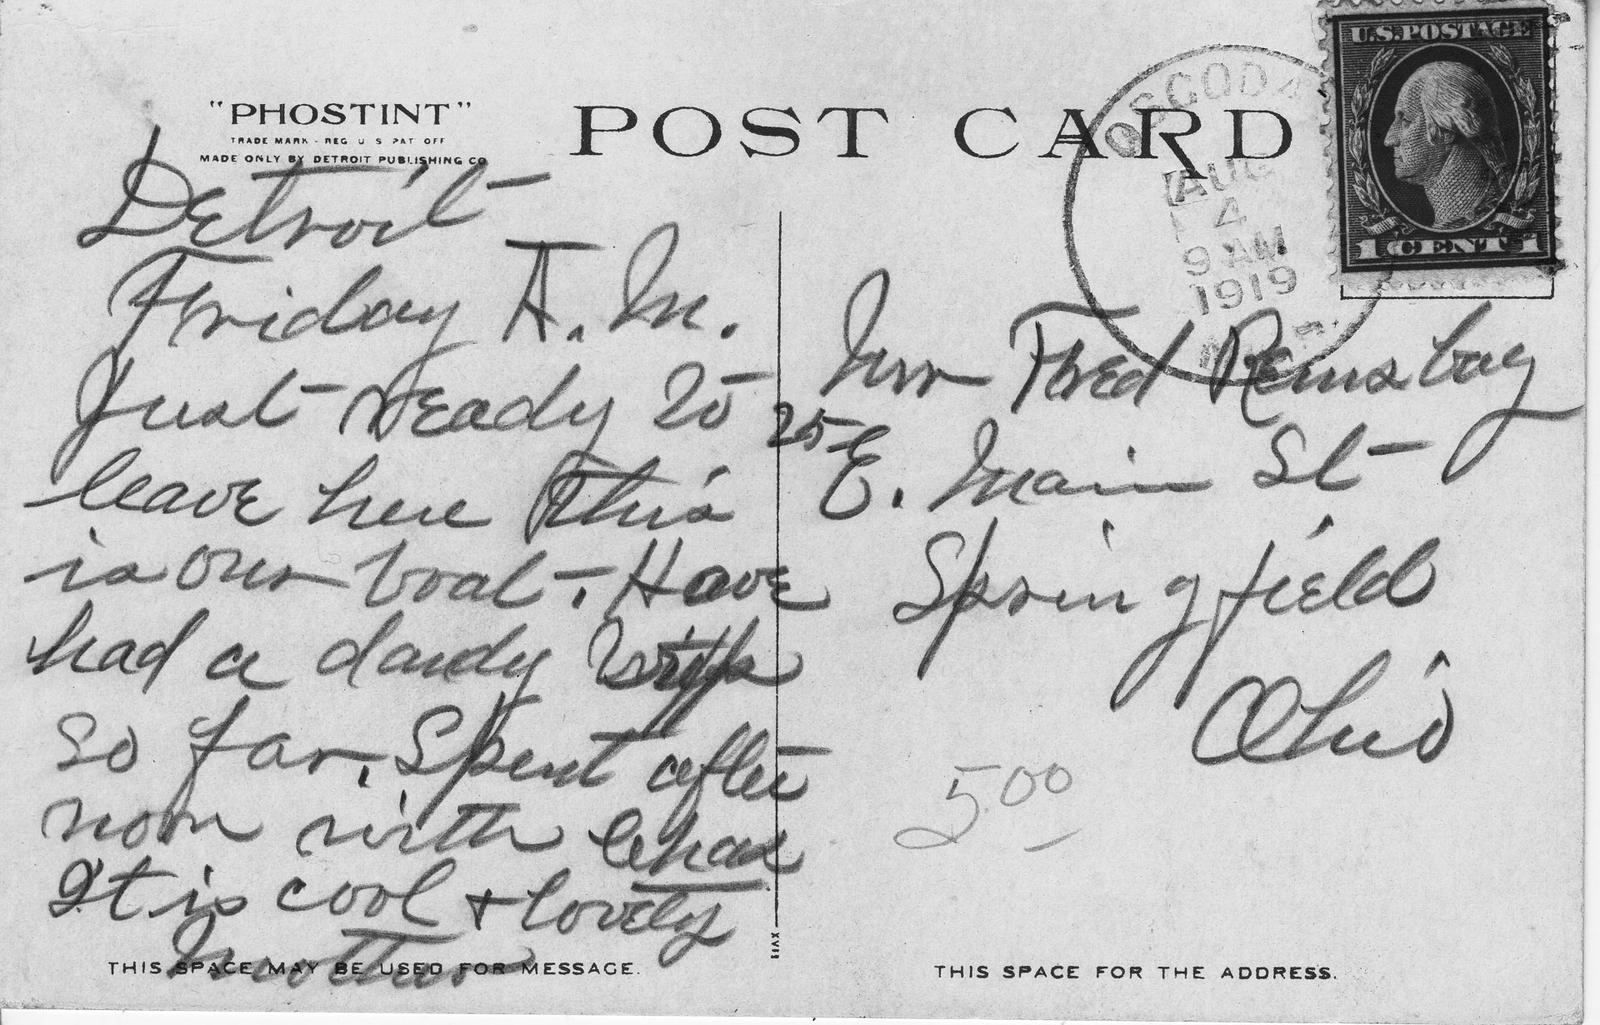 "PHOSTINT"
TRADE MARK - REG U S PAT OFF
MADE ONLY BY DETROIT PUBLISHING CO
POST CARD
OSCODA
AUG
4
9 AM
1919
MICH.
U.S. POSTAGE
1 CENT 1
Detroit
Friday A. M.
Just ready to
leave here This
is our boat. Have
had a dandy trip
so far. Spent after
noon with Chas
It is cool & lovely
Mother
Mrs Fred Remsbag
25
E. Main St
Springfield
Ohio
5.00
XVII
THIS SPACE MAY BE USED FOR MESSAGE.
THIS SPACE FOR THE ADDRESS.